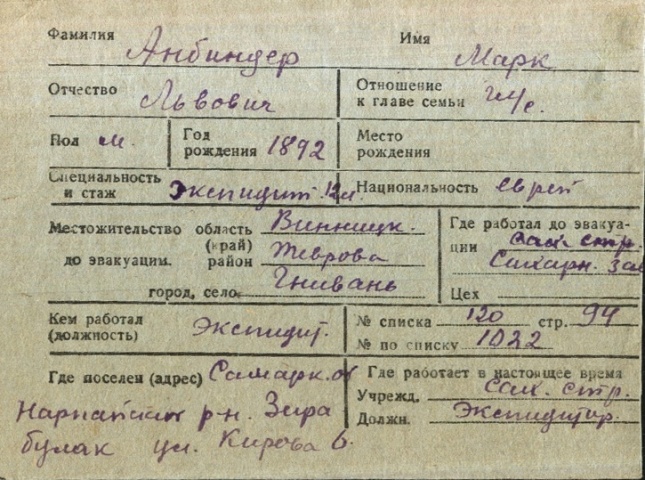 Фамилия Анбиндер Имя Марк
Отчество Львович Отношение к главе семьи гл/с.
Пол м. Год рождения 1892 Место рождения
Специальность и стаж Экспидит. 12 л. Национальность еврей
Местожительство до эвакуации. область (край) Винницк.
район Жеврова
город, село Гнивань
Где работал до эвакуации сах. стр.
Сахарн. зав
Цех
Кем работал (должность) Экспидит. № списка 120 стр. 94
№ по списку 1022
Где поселен (адрес) Самарк. об
Нарпайский р-н. Зира
булак ул. Кирова 6.
Где работает в настоящее время
Учрежд. Сах. стр.
Должн. Экспидитор.